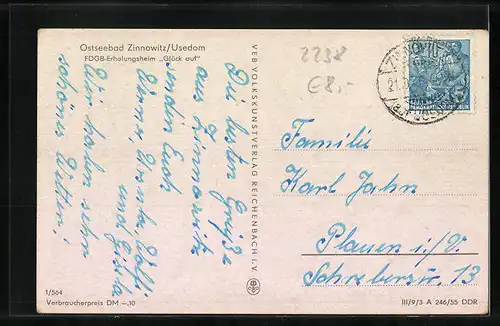 Ostseebad Zinnowitz/Usedom
FDGB-Erholungsheim „Glück auf"
Die besten Grüße
aus Zinnowitz
senden Euch
Erna, Ursula, Rolf
und Gisela
Wir haben sehr
schönes Wetter!
1/564
Verbraucherpreis DM –,10
VEB VOLKSKUNSTVERLAG REICHENBACH I. V.
2238
€8,-
ZINNOWITZ
21.
Familie
Karl Jahn
Plauen i./V.
Schreberstr. 13
III/9/3 A 246/55 DDR